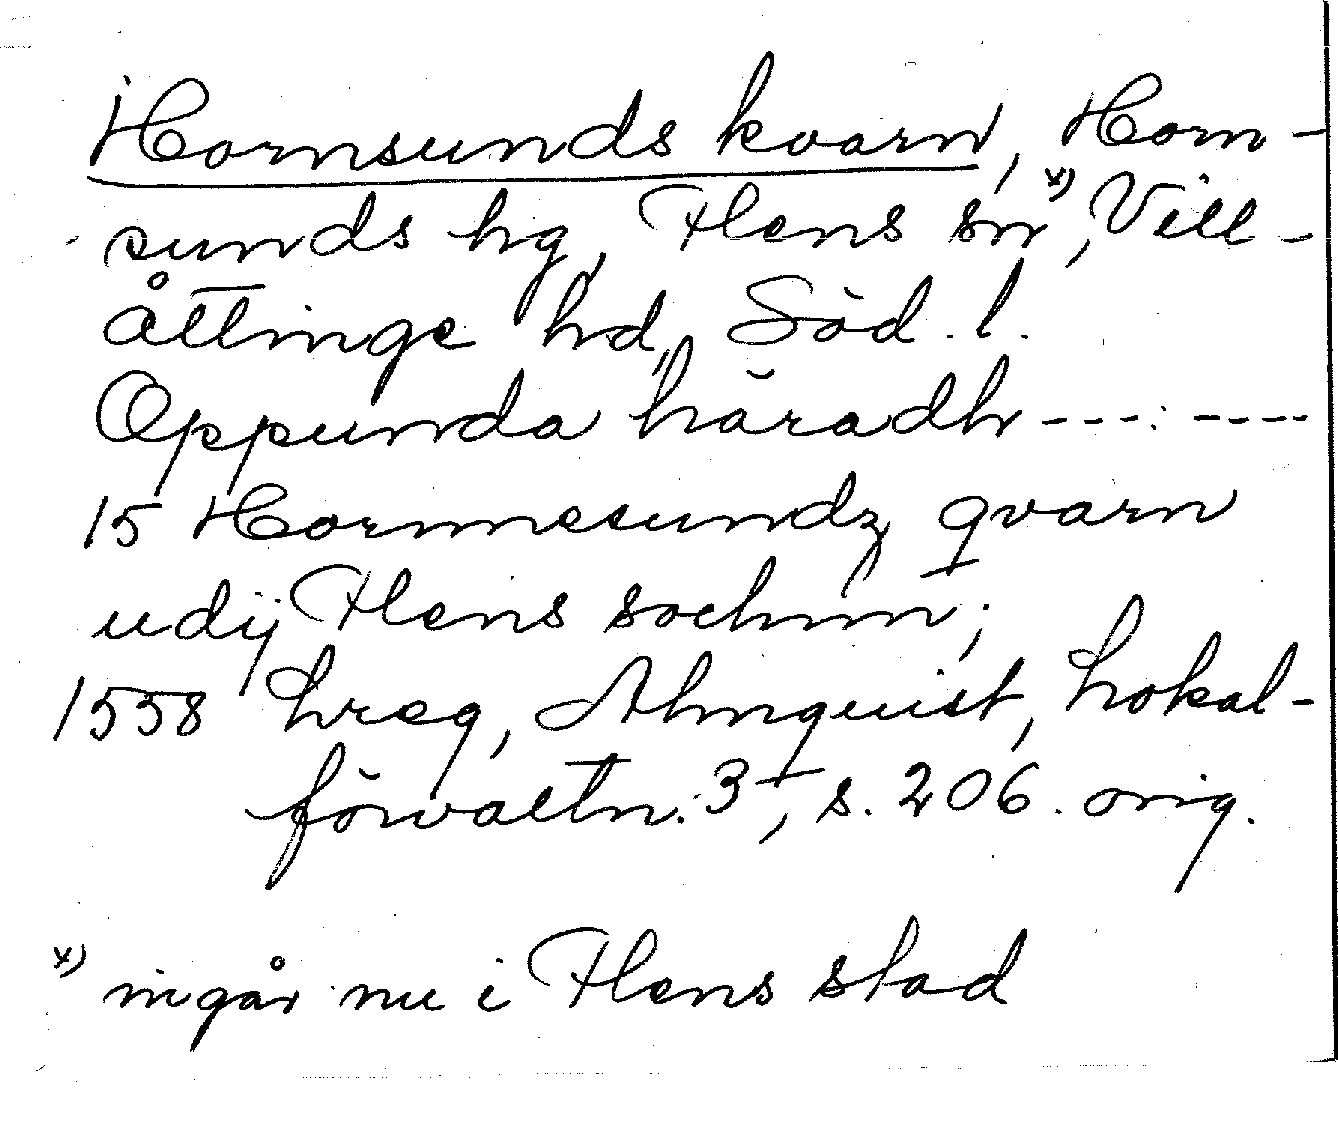 Hornsunds kvarn, Horn-
sunds hg, Flens sn x), Vill-
åttinge hd, Söd. l.
Oppunda häradh ---: ----
15 Hornnesundz qvarn
udij Flens sochnn;
1558 hreg, Almquist, Lokal-
förvaltn. 3, s. 206. orig.
x) ingår nu i Flens stad